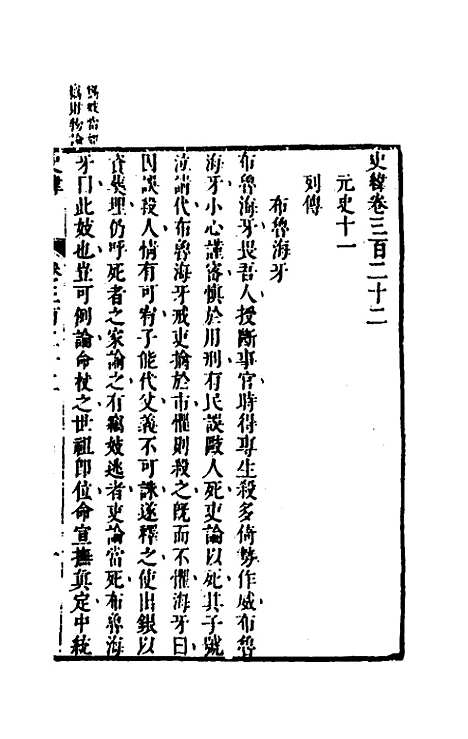 史緯卷三百二十二
元史十一
列傳
布魯海牙
布魯海牙畏吾人授斷事官時得專生殺多倚勢作威布魯
海牙小心謹審慎於用刑有民誤毆人死吏論以死其子號
泣請代布魯海牙戒吏擒於市懼則殺之既而不懼海牙曰
因誤殺人情有可宥子能代父義不可誅遂釋之使出銀以
資葬埋仍呼死者之家諭之有竊妓逃者吏論當死布魯海
牙曰此妓也豈可例論命杖之世祖即位命宣撫眞定中統
竊妓當認
爲財物論
史緯
卷三百二十二